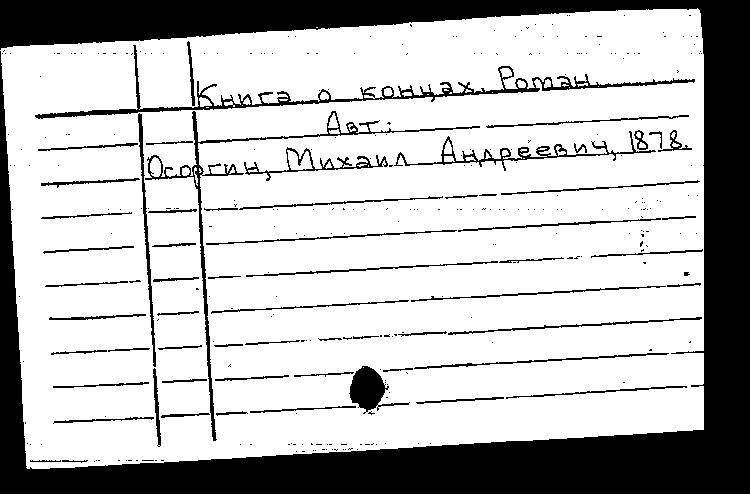 Книга о концах. Роман.
Авт.:
Осоргин, Михаил Андреевич, 1878.